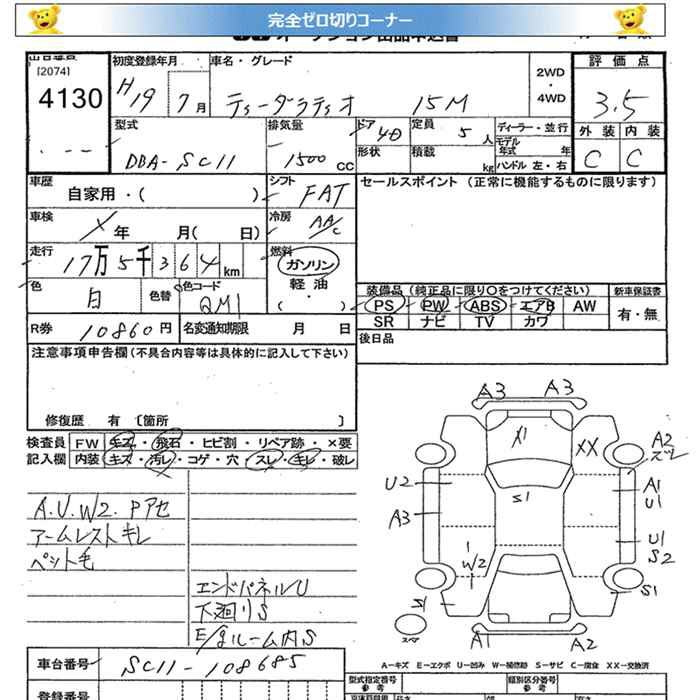 完全ゼロ切りコーナー
[2074]
4130
初度登録年月
H19 7月
車名・グレード
ティーダラティオ 15M
2WD
・
4WD
評価点
3.5
外装 内装
C C
型式
DBA-SC11
排気量
1500 CC
ドア
4D
形状
定員
5人
積載
kg
ディーラー・並行
モデル年式 年
ハンドル 左・右
車歴
自家用・( )
シフト
FAT
セールスポイント (正常に機能するものに限ります)
車検
X年 月( 日)
冷房
AA/C
走行
17万5千364km
燃料
ガソリン
軽油
・( )
色
白
色替
色コード
QM1
装備品(純正品に限り○をつけてください)
PS PW ABS エアB AW
SR ナビ TV カワ
新車保証書
有・無
R券
10860円
名変通知期限 月 日
後日品
注意事項申告欄(不具合内容等は具体的に記入して下さい)
修復歴 有 [箇所 ]
検査員 FW キズ・飛石・ヒビ割・リペア跡・×要
記入欄 内装 キズ・汚レ・コゲ・穴・スレ・キレ・破レ
A.U.W2.Pアセ
アームレストキレ
ペット毛
エンドパネルU
下廻りS
E/gルーム内S
A3 A3
X1
XX
A2
ズレ
U2
S1
A1
U1
A3
U1
S2
W2
S1
S1
スペア
A1
A2
A-キズ E-エクボ U-凹み W-補修跡 S-サビ C-腐食 XX-交換済
車台番号
SC11-108685
登録番号
型式指定番号
参考
類別区分番号
参考